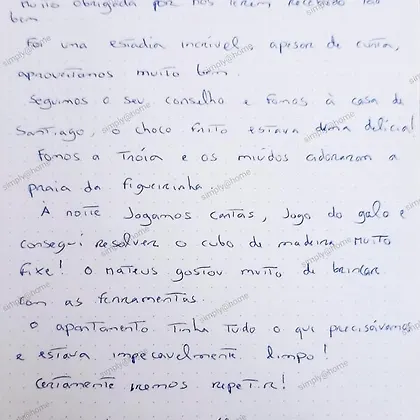 Muito obrigada por nos terem recebido tão
bem
Foi uma estadia incrível, apesar de curta,
aproveitamos muito bem.
Seguimos o seu conselho e fomos à casa de
Santiago, o choco frito estava uma delícia!
Fomos a Tróia e os miúdos adoraram a
praia da figueirinha.
À noite Jogamos cartas, Jogo do galo e
consegui resolver o cubo de madeira muito
fixe! O Mateus gostou muito de brincar
com as ferramentas.
O apontamento tinha tudo o que precisávamos
e estava impecavelmente limpo!
Certamente iremos repetir!
simply@home